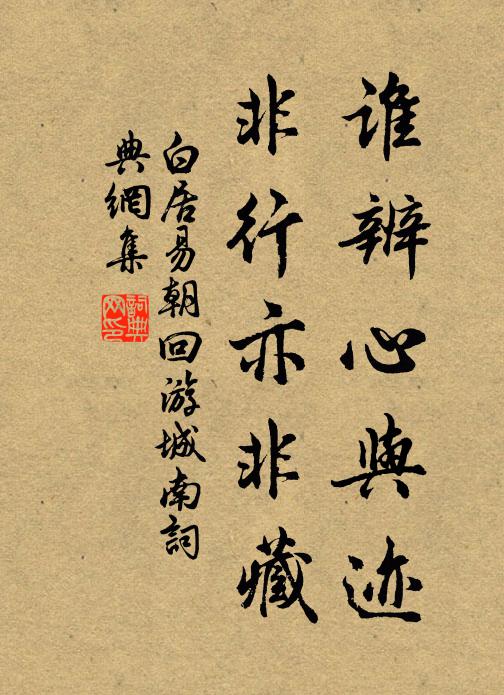 谁辨心與迹
非行亦非藏
白居易朝回游城南詞
典網集
詞典
网印